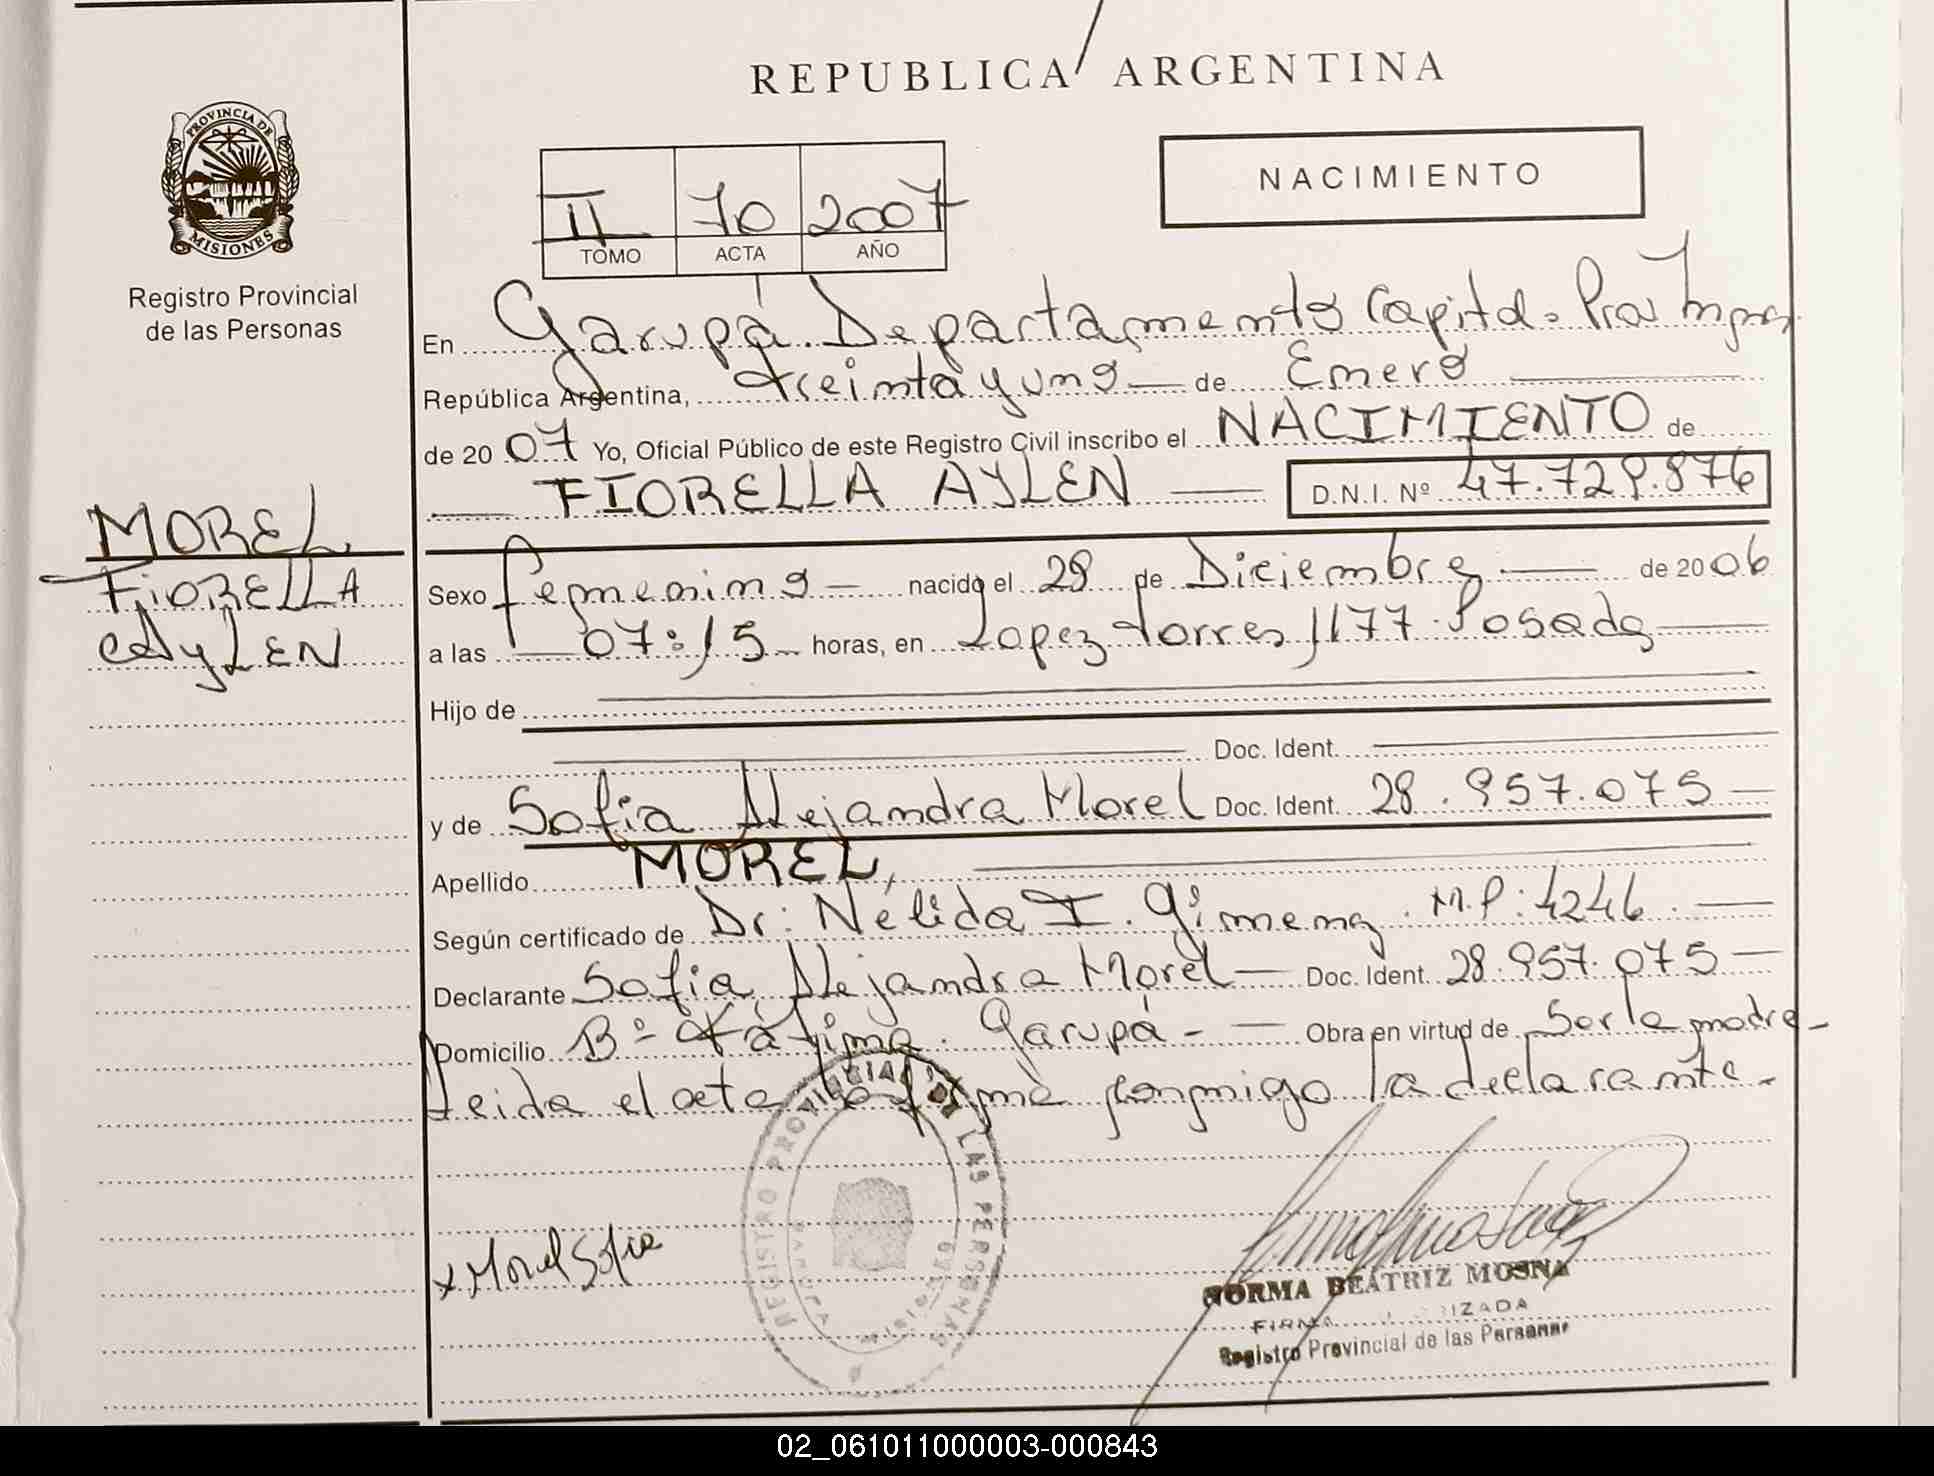 REPUBLICA ARGENTINA
PROVINCIA DE
MISIONES
Registro Provincial
de las Personas
NACIMIENTO
II 70 2007
TOMO ACTA AÑO
En Garupá Departamento Capital. Prov
República Argentina, treinta y uno de Enero
de 2007 Yo, Oficial Público de este Registro Civil inscribo el NACIMIENTO de
FIORELLA AYLEN D.N.I. Nº 47.729.876
MOREL
FIORELLA
AYLEN
Sexo femenino nacido el 28 de Diciembre de 2006
a las 07:15 horas, en Lopez torres 1177. Posadas
Hijo de
Doc. Ident.
y de Sofia Alejandra Morel Doc. Ident. 28.957.075
Apellido MOREL,
Según certificado de Dr: Nélida I. Gimenez. M.P: 4246.
Declarante Sofia Alejandra Morel Doc. Ident. 28.957.075
Domicilio Bº Fátima. Garupá - Obra en virtud de Ser la madre-
leida el acta la firma conmigo la declarante-
x Morel Sofia
REGISTRO PROVINCIAL DE LAS PERSONAS
MISIONES
NORMA BEATRIZ MOSNA
FIRMA
Registro Provincial de las Personas
02_061011000003-000843